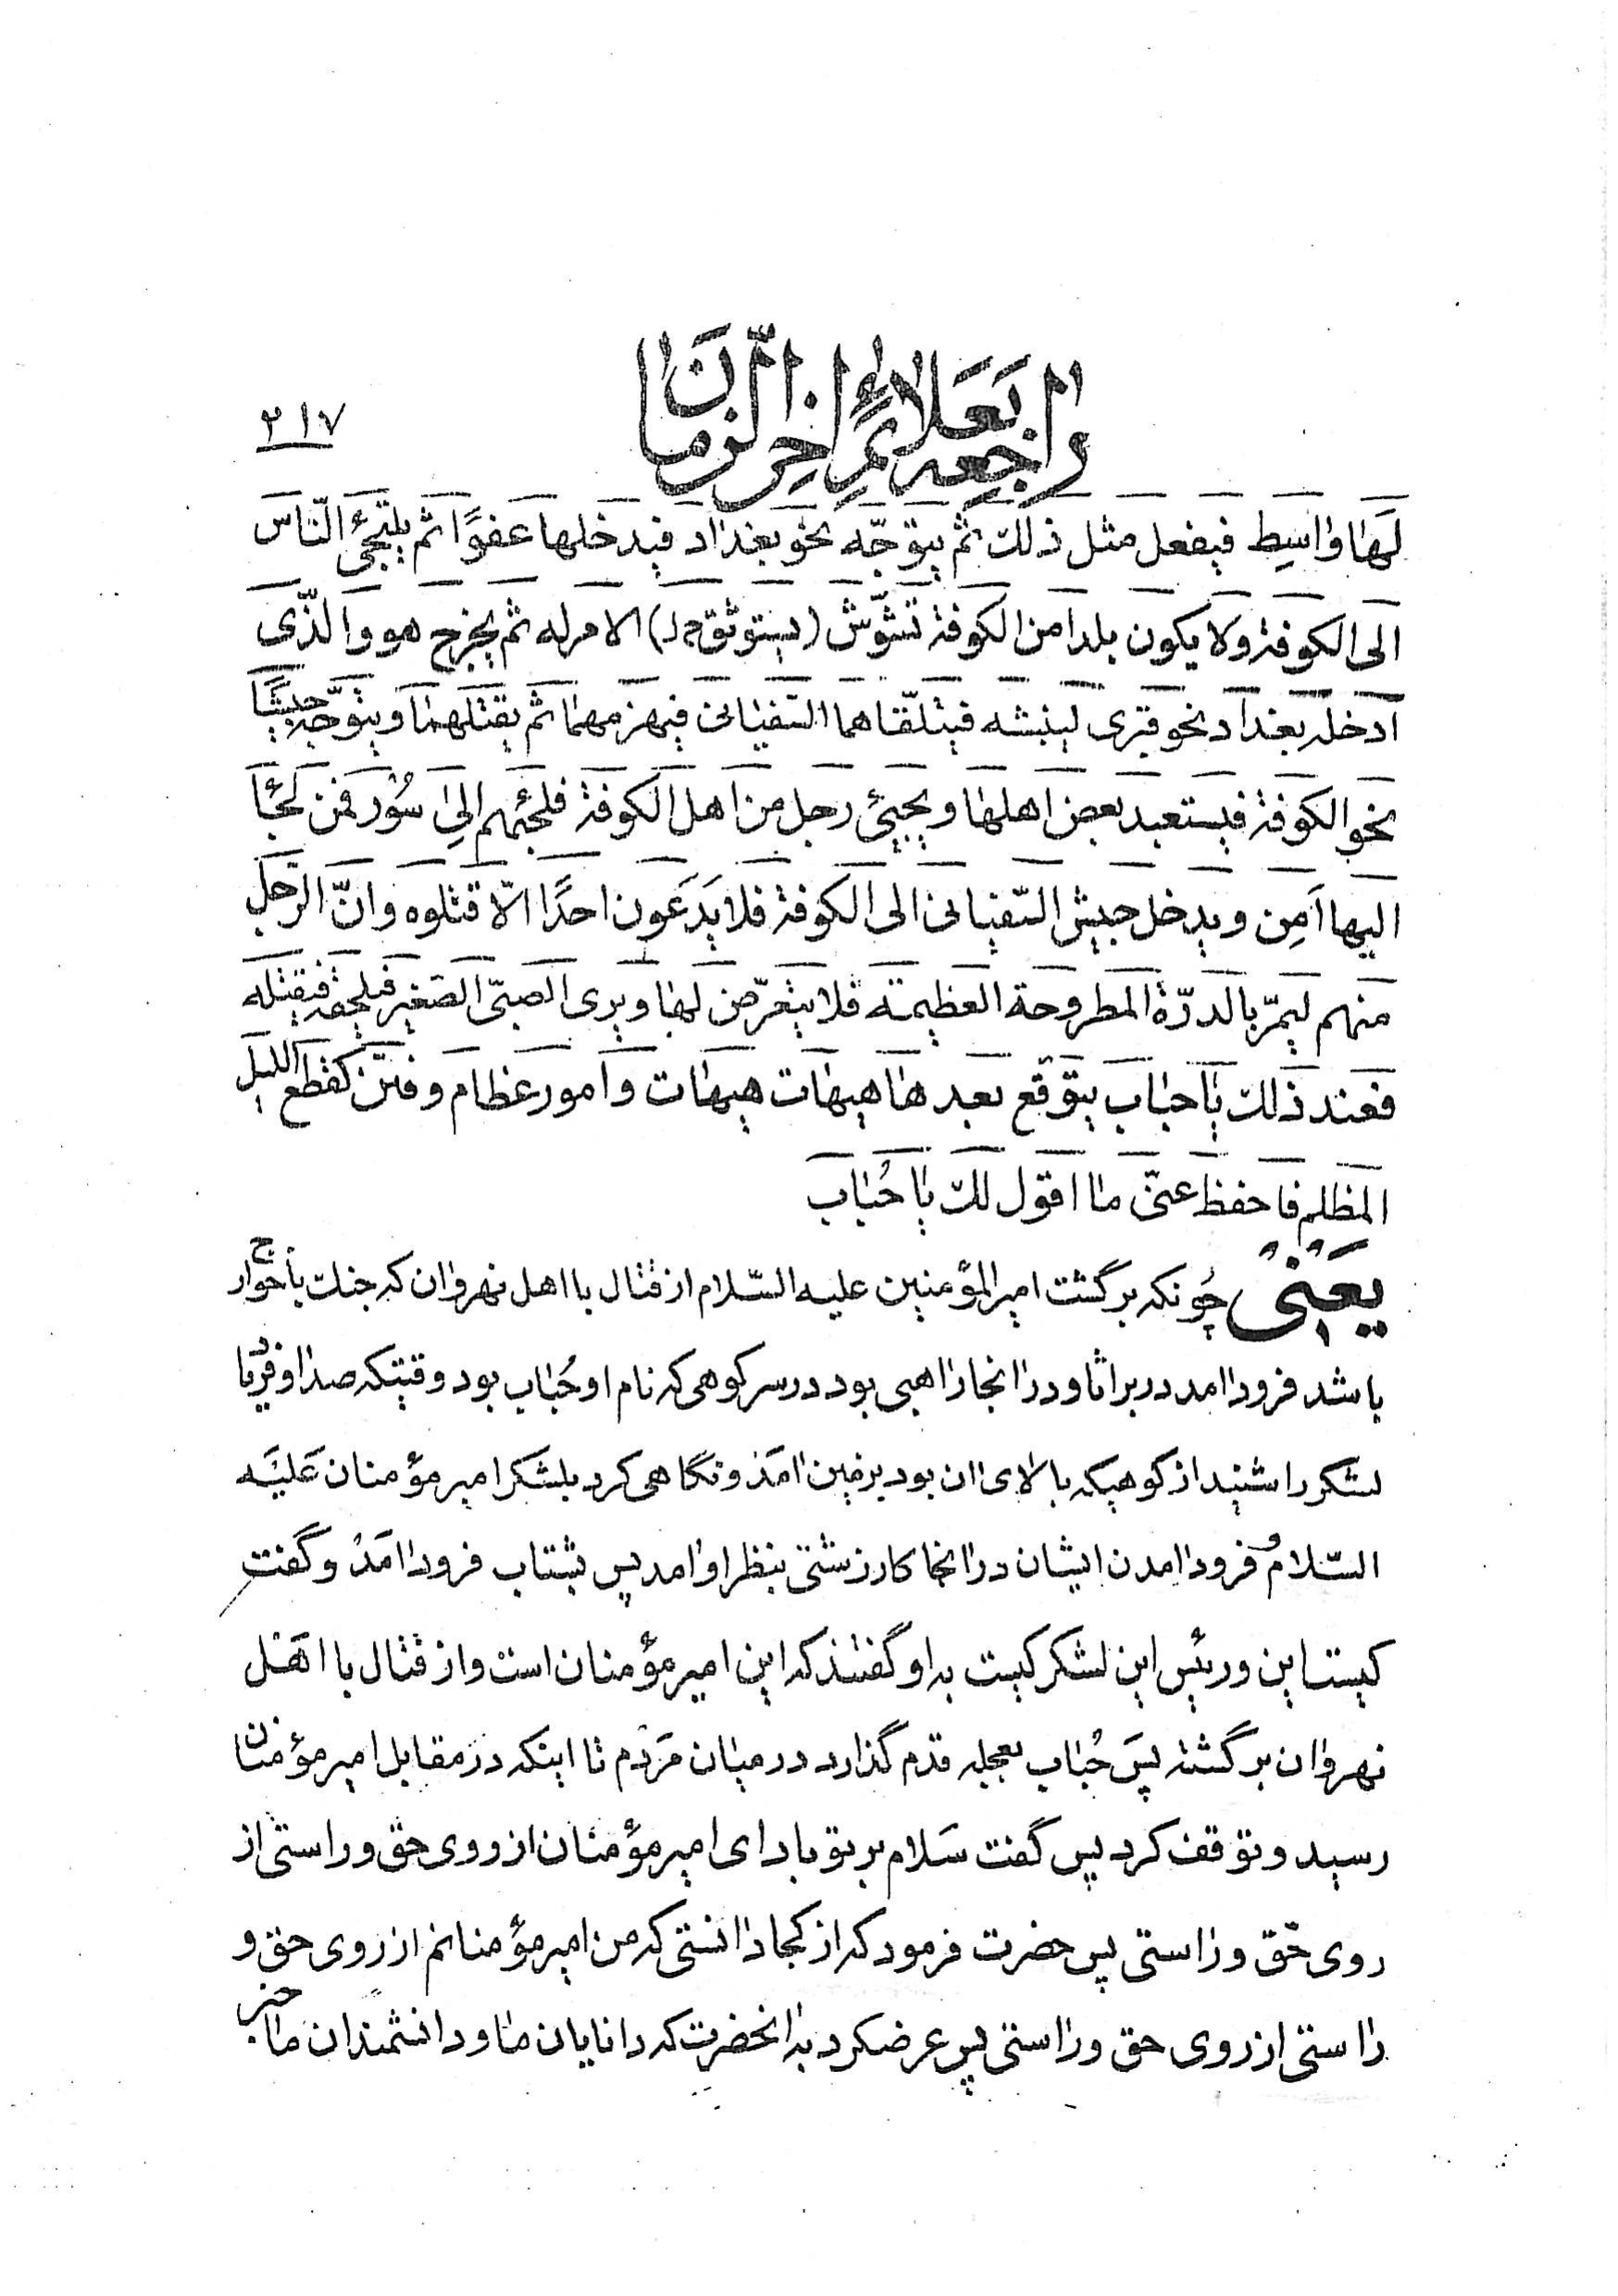 راجعه بعلائم اخر الزمان
۲۱۷
لها واسط فیفعل مثل ذلك ثم یتوجّه نحو بغداد فیدخلها عفوًا ثم یلتجئ النّاس
الی الکوفة ولا یکون بلدا من الکوفة تشوّش (یستوثق خ‌ل) الامر له ثم یخرج هو والّذی
ادخله بغداد نحو قبری لینبشه فیتلقّاهما السّفیانی فیهزمهما ثم یقتلهما ویتوجّه جیشًا
نحو الکوفة فیستعبد بعض اهلها ویجیئ رجل من اهل الکوفة فلجئهم الی سُور فمن لجئا
الیها اَمِن ویدخل جیش السّفیانی الی الکوفة فلا یَدَعون احدًا الّا قتلوه وانّ الرّجل
منهم لیمرّ بالدرّة المطروحة العظیمة فلا یتعرّض لها ویری الصبیّ الصّغیر فیلحقه فیقتله
فعند ذلك یا حباب یتوقع بعدها هیهات هیهات وامور عظام وفتن کقطع اللیل
المظلم فاحفظ عنّی ما اقول لك یا حُباب
یعنی چونکه برگشت امیر المؤمنین علیه السّلام از قتال با اهل نهروان که جنك با خوارج
باشد فرود امد در براثا و در انجا راهبی بود در سر کوهی که نام او حُباب بود وقتیکه صدا و فریاد
لشکر را شنید از کوهیکه بالای ان بود بزمین امد و نگاهی کرد بلشکر امیر مؤمنان عَلَیه
السّلام و فرود امدن ایشان در انجا کار زشتی بنظر او امد پس بشتاب فرود امَدْ و گفت
کیست این و رئیس این لشکر کیست به او گفتند که این امیر مؤمنان است و از قتال با اهل
نهروان برگشته پسَ حُباب بعجله قدم گذارد در میان مَردم تا اینکه در مقابل امیر مؤمنان
رسید و توقف کرد پس گفت سَلام بر تو باد ای امیر مؤمنان از روی حق و راستی از
روی حّق و راستی پس حضرت فرمود که از کجا دانستی که من امیر مؤمنانم از روی حق و
راستی از روی حق و راستی پس عرضکرد به انحضرت که دانایان ما و دانشمندان ما خبر